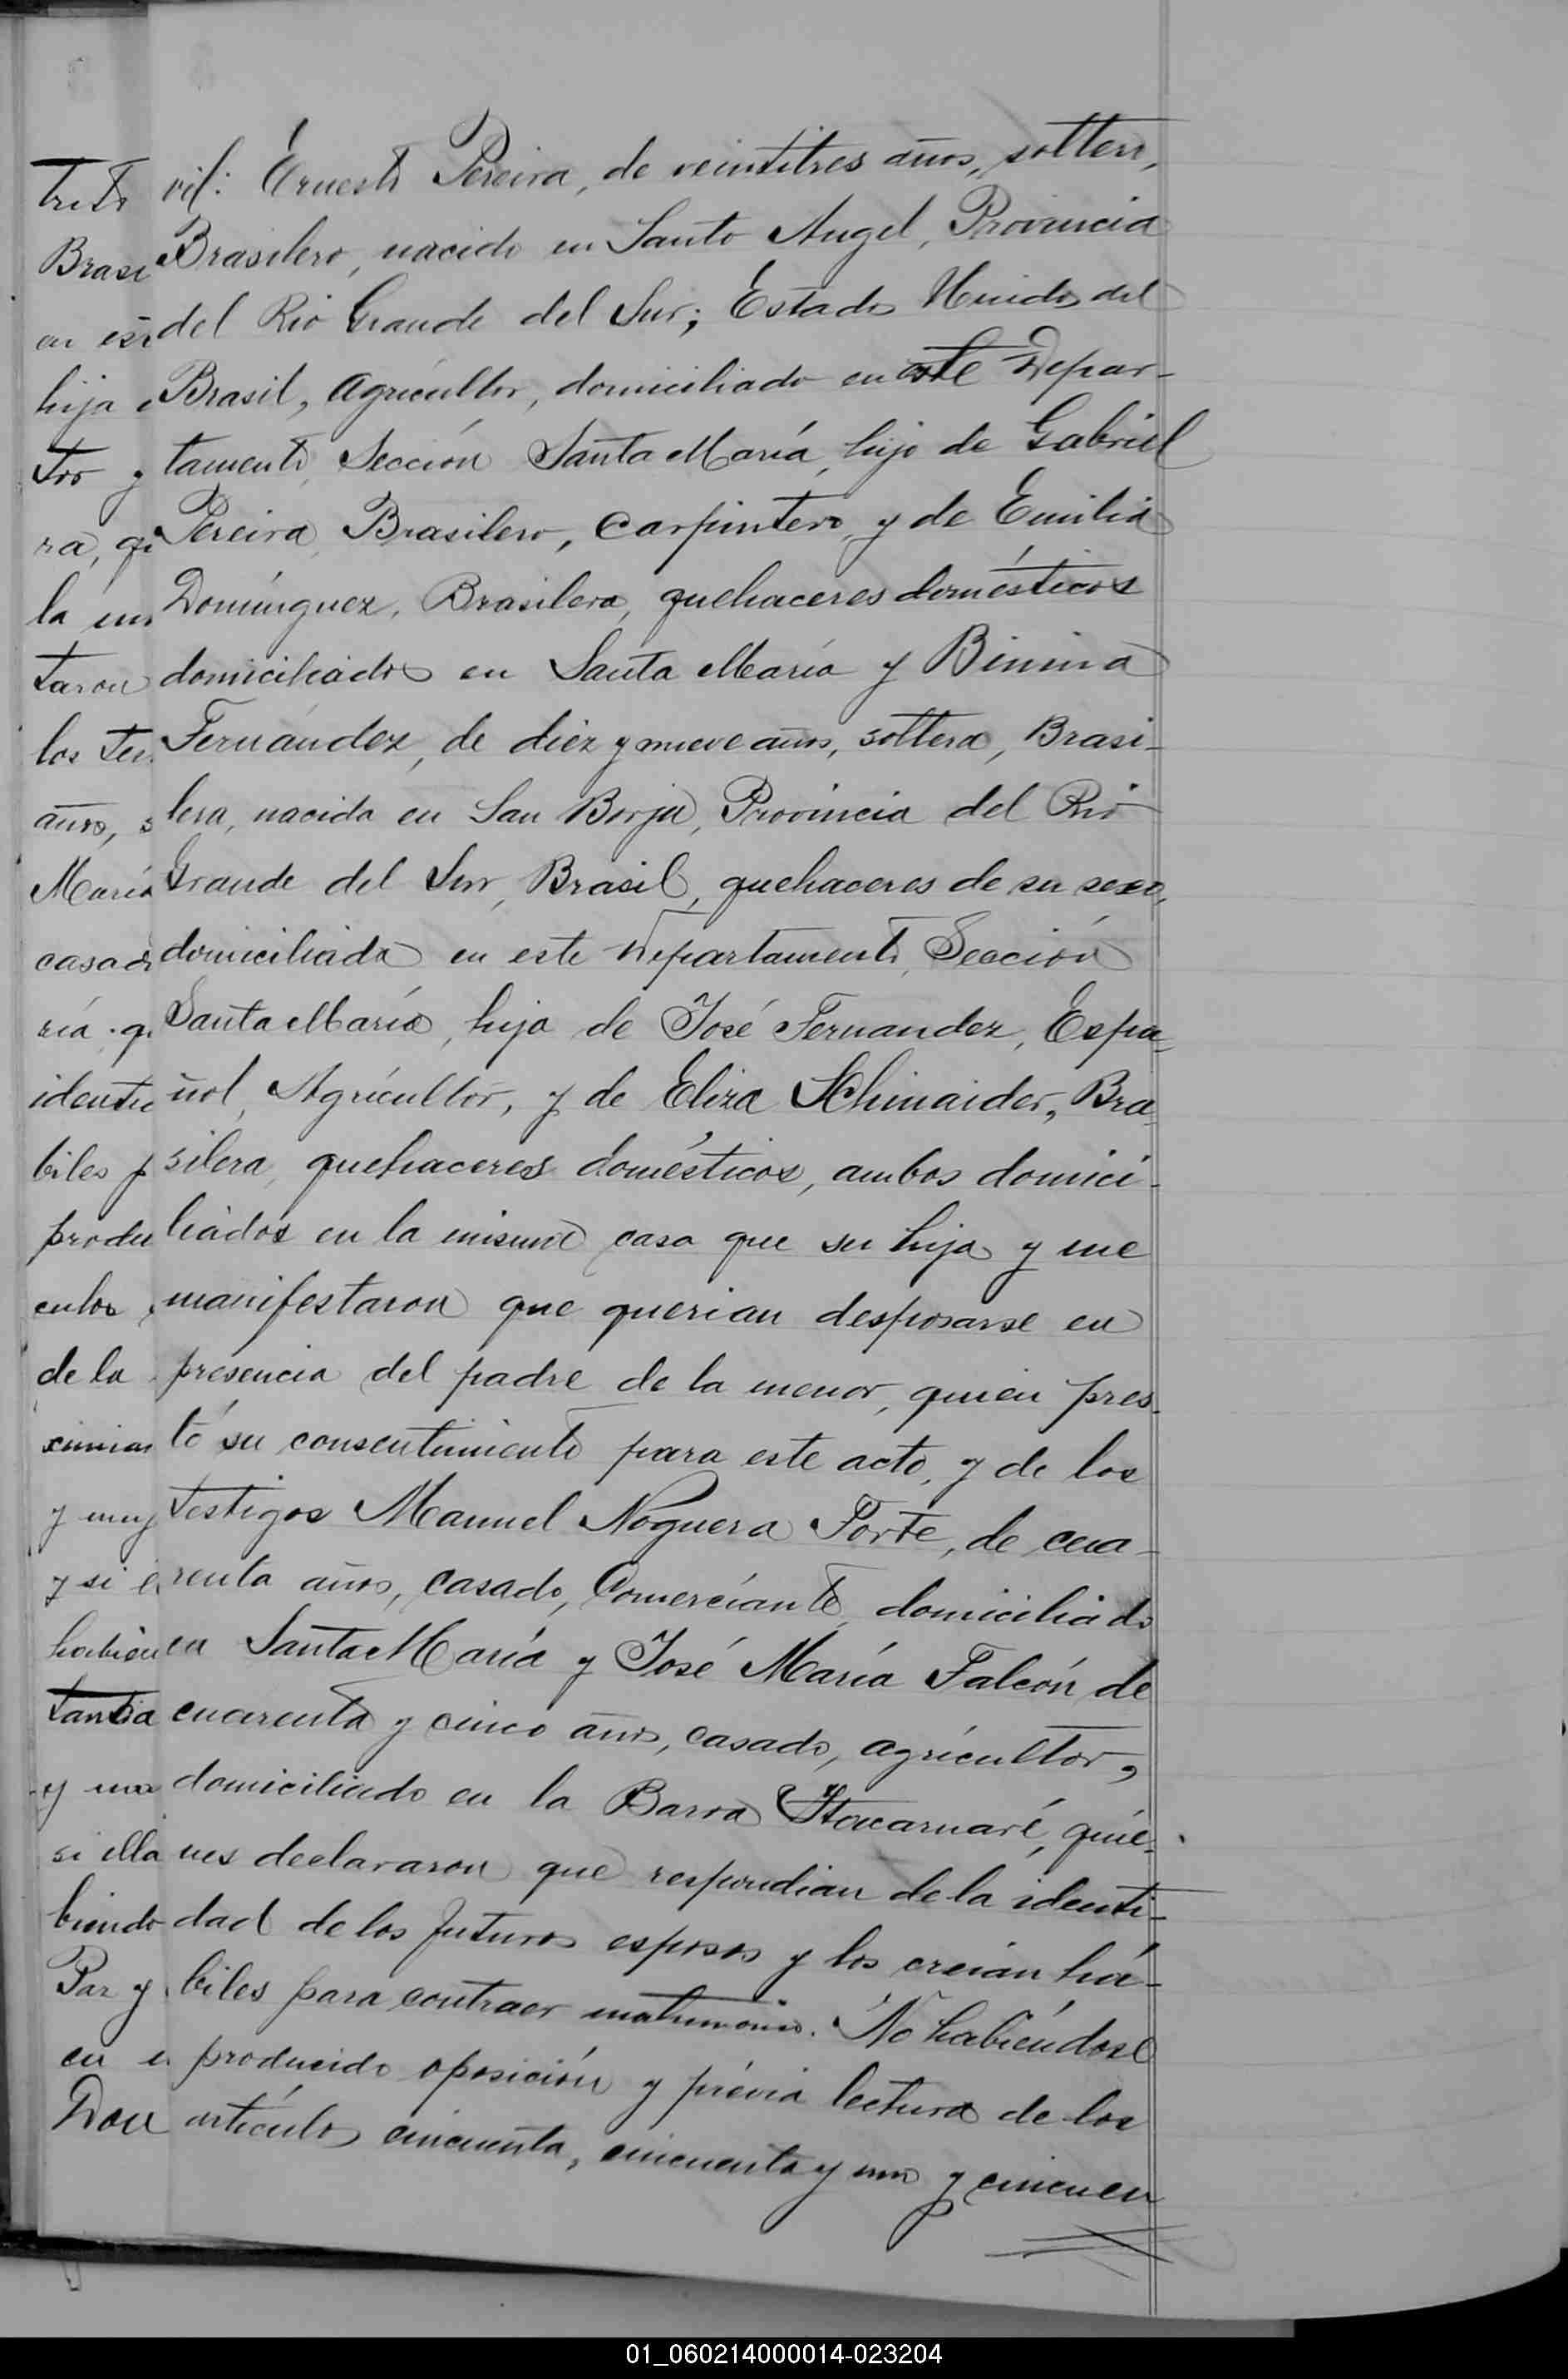 vil: Ernesto Pereira, de veintitres años, soltero,
Brasilero, nacido en Santo Angel, Provincia
del Rio Grande del Sur; Estados Unidos del
Brasil, agricultor, domiciliado en este Depar-
tamento, Sección Santa María, hijo de Gabriel
Pereira, Brasilero, Carpintero, y de Emilia
Domínguez, Brasilera, quehaceres domésticos
domiciliados en Santa María y Binina
Fernández, de diez y nueve años, soltera, Brasi-
lera, nacida en San Borja, Provincia del Rio
Grande del Sur, Brasil, quehaceres de su sexo,
domiciliada en este Departamento, Sección
Santa María, hija de José Fernandez, Espa-
ñol, Agricultor, y de Eliza Schinaider, Bra-
silera, quehaceres domésticos, ambos domici-
liados en la misma casa que su hija y me
manifestaron que querian desposarse en
presencia del padre de la menor, quien pres-
tó su consentimiento para este acto, y de los
testigos Manuel Noguera Porte, de cua-
renta años, casado, Comerciante, domiciliado
en Santa María y José María Falcón de
cuarenta y cinco años, casado, agricultor,
domiciliado en la Barra Itacaruaré, quie-
nes declararon que respondian de la identi-
dad de los futuros esposos y los creian há-
biles para contraer matrimonio. No habiéndose
producido oposición y prévia lectura de los
artículos cincuenta, cincuenta y uno y cincuen
trets
Brasi
en es
hija
tor y
ra, qi
la un
taron
los
años, s
María
casad
ria. q
identi
biles p
produ
culos
de la
y muj
y si
habien
tancia
y ma
si ella
biendo
Paz y
en
Don
01_060214000014-023204